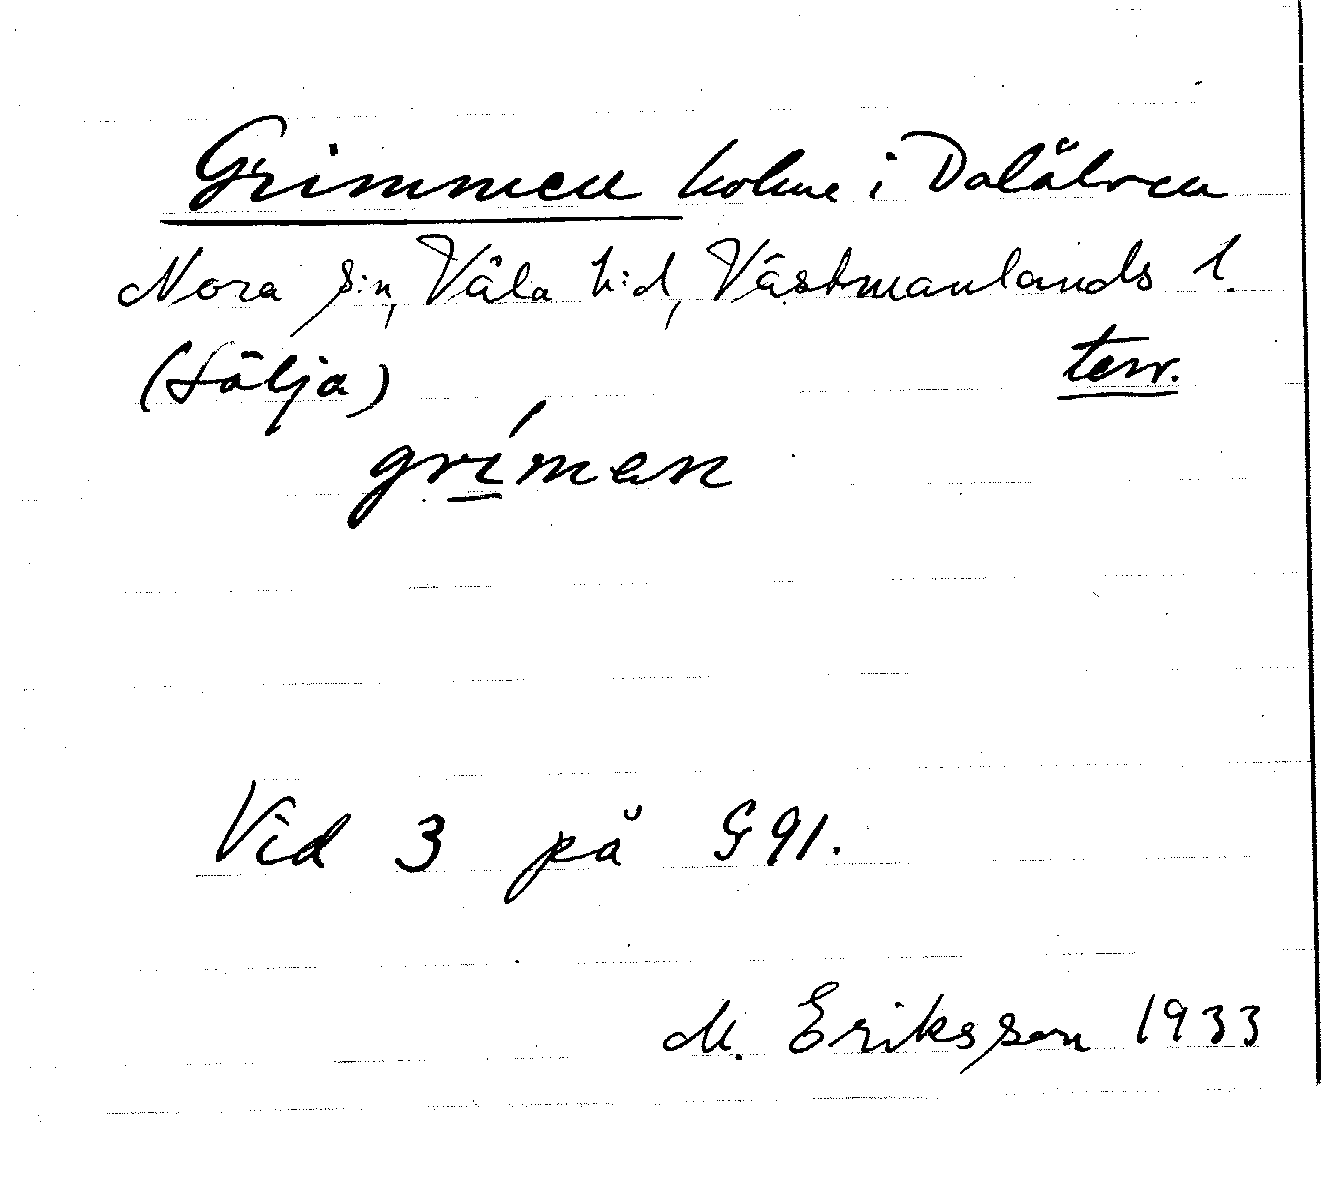 Grimmen holme i Dalälven
Nora s:n, Våla h:d, Västmanlands l.
(Sälja) terr.
gríman
Vid 3 på G 91.
M. Eriksson 1933